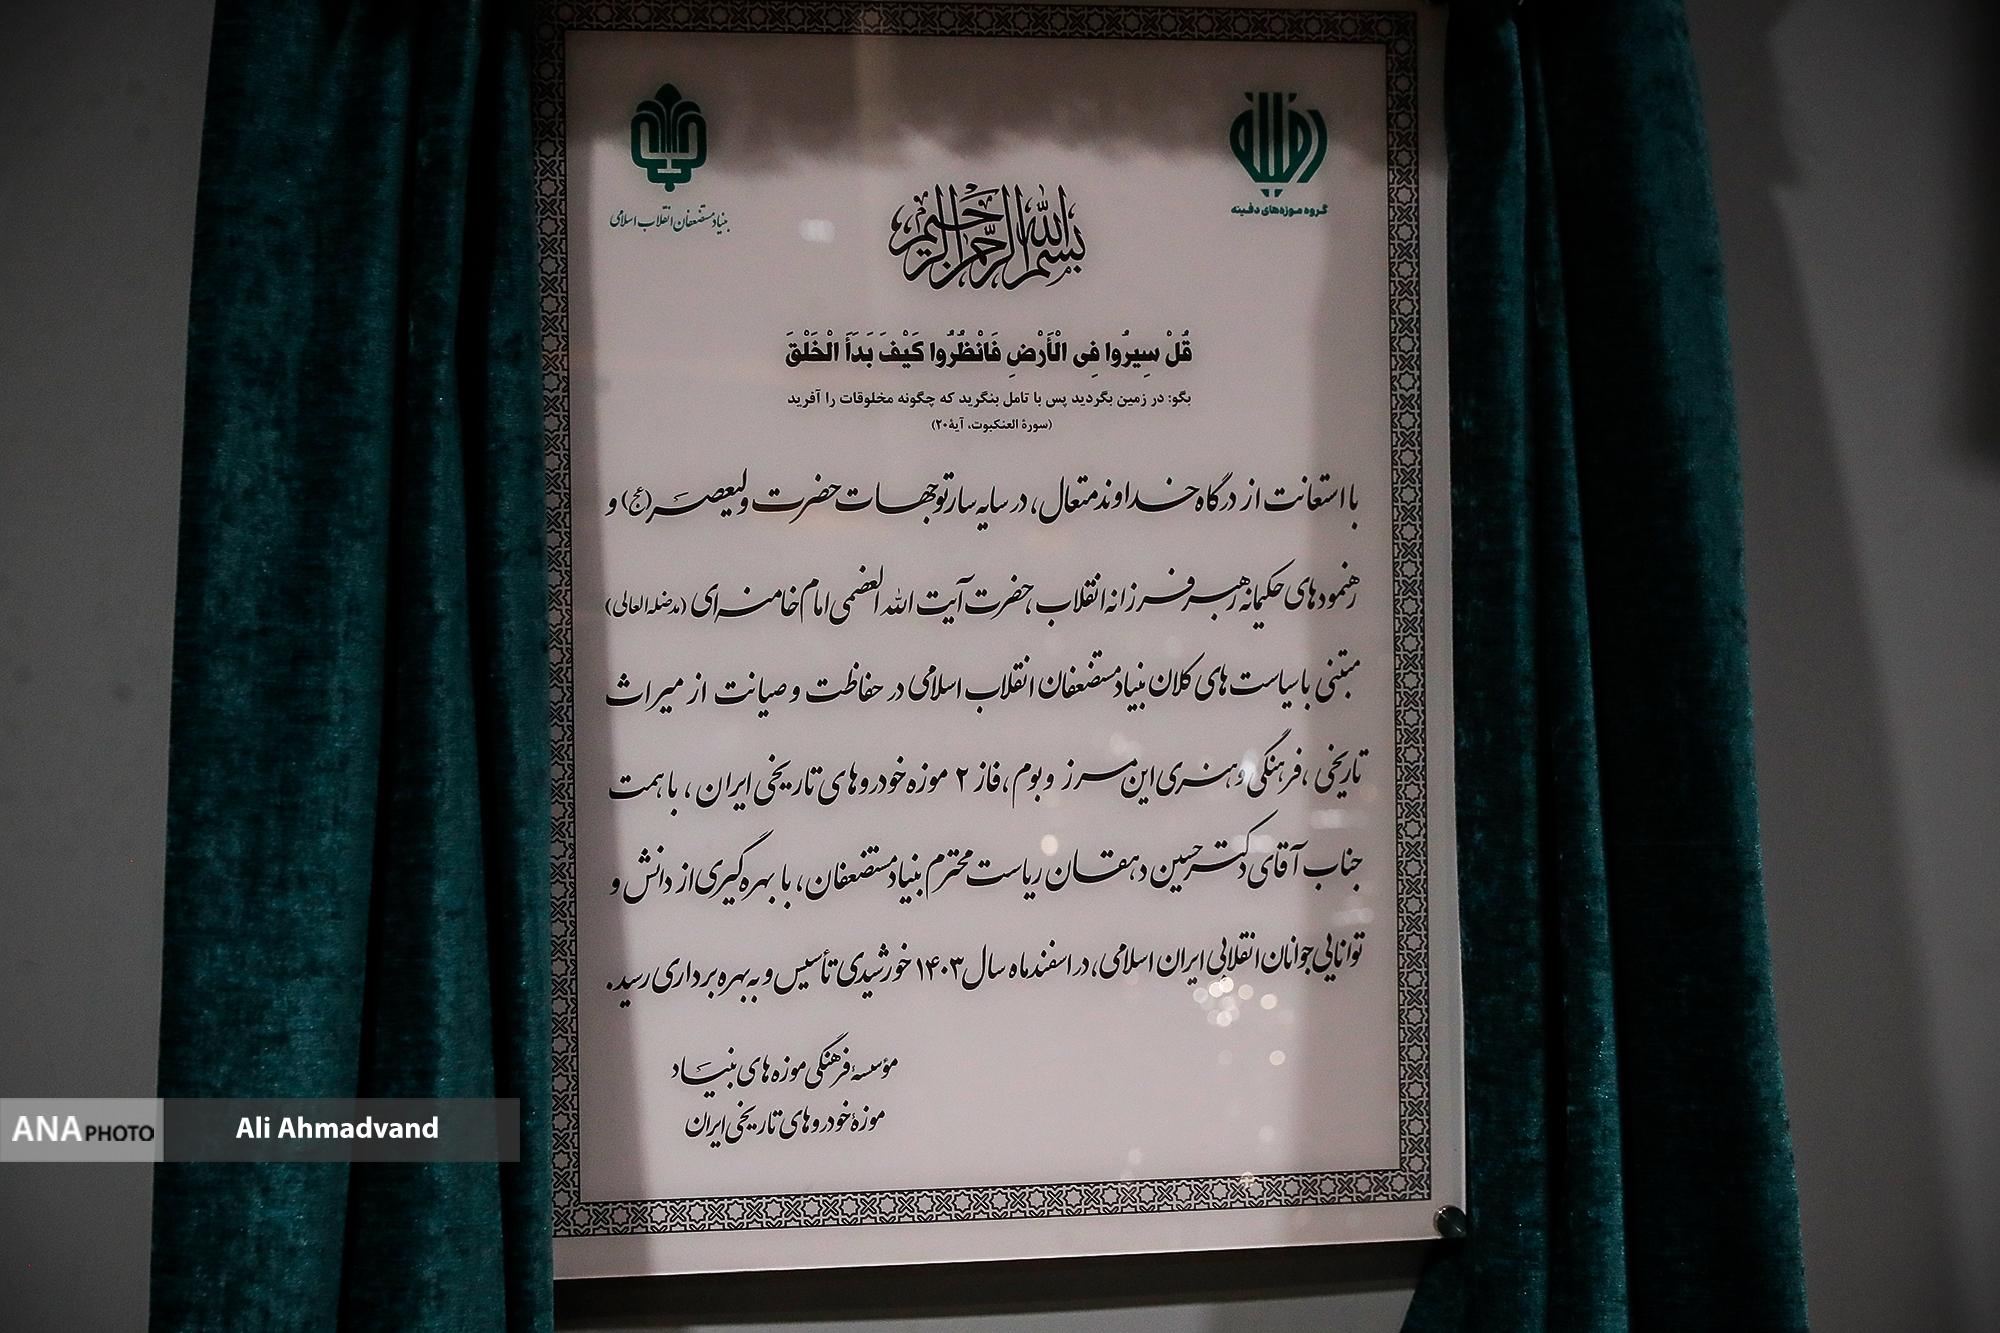 دفینه
گروه موزه‌های دفینه
بنیاد مستضعفان انقلاب اسلامی
بسم الله الرحمن الرحیم
قُلْ سِیرُوا فِی الْأَرْضِ فَانْظُرُوا کَیْفَ بَدَأَ الْخَلْقَ
بگو: در زمین بگردید پس با تامل بنگرید که چگونه مخلوقات را آفرید
(سورهٔ العنکبوت، آیهٔ ۲۰)
با استعانت از درگاه خداوند متعال، در سایه سار توجهات حضرت ولیعصر (عج) و
رهنمودهای حکیمانه رهبر فرزانه انقلاب، حضرت آیت الله العضمی امام خامنه‌ای (مدضله العالی)
مبتنی با سیاست های کلان بنیاد مستضعفان انقلاب اسلامی در حفاظت و صیانت از میراث
تاریخی، فرهنگی و هنری این مرز و بوم، فاز ۲ موزه خودروهای تاریخی ایران، با همت
جناب آقای دکتر حسین دهقان ریاست محترم بنیاد مستضعفان، با بهره گیری از دانش و
توانایی جوانان انقلابی ایران اسلامی، در اسفند ماه سال ۱۴۰۳ خورشیدی تأسیس و به بهره برداری رسید.
مؤسسهٔ فرهنگی موزه های بنیاد
موزهٔ خودروهای تاریخی ایران
ANAPHOTO Ali Ahmadvand